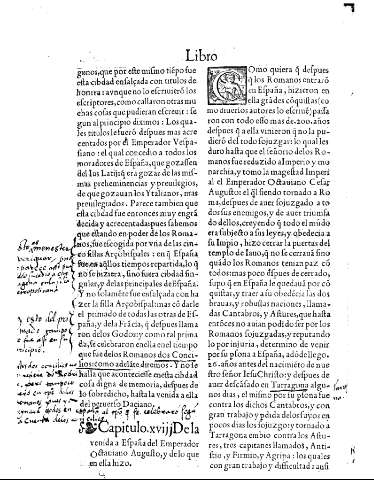 Libro
gienos, que por este mismo tiẽpo fue
esta cibdad ensalçada con titulos de
honrra: aunque no lo escriuiero los
escriptores, como callaron otras mu
chas cosas que pudieran escreuir: se
gun al principio diximos: Los qua
les titulos le fuerõ despues mas acre
centados por el Emperador Vespa
siano: el qual concedio a todos los
moradores de España, que gozassen
del Ius Latij, q̃ era gozar de las mis
mas prehemenencias y preuilegios,
de que gozauan los Ytalianos, mas
preuilegiados. Parece tambien que
esta cibdad fue entonces muy engrã
decida y acrecentada: pues sabemos
que estando en poder de los Roma-
nos, fue escogida por vna de las cin-
co sillas Arçobispales: en q̃ España
fue en aq̃llos tiempos repartida, lo q̃
no se hiziera, sino fuera cibdad sin-
gular, y de las principales de España.
Y no solamẽte fue ensalçada con ha-
zer la silla Arçobispal: mas cõ darle
el primado de todas las otras de Es-
paña, y dela Frãcia, q̃ despues llama-
ron delos Godos: y como tal prima
da, se celebraron en ella en el tiempo
que fue delos Romanos dos Conci-
lios: como adelãte diremos. Y no se
halla que aconteciesse en esta cibdad
cosa digna de memoria, despues de
lo sobredicho, hasta la venida a ella
del peruerso Daciano.
Capitulo.xvij. De la
venida a España del Emperador
Octauiano Augusto, y delo que
en ella hizo.
COmo quiera q̃ despues
q̃ los Romanos entrarõ
en España, hizieron en
ella grãdes cõquistas: co
mo diuersos autores lo escriuẽ: passa
ron con todo esso mas de. 200. años
despues q̃ a ella vinieron q̃ no la pu-
dierõ del todo sojuzgar: lo qual les
duro hasta que el señorio delos Ro-
manos fue reduzido a Imperio y mo
narchia, y tomo la magestad Imperi
al el Emperador Octauiano Cesar
Augusto: el q̃l siendo tornado a Ro
ma, despues de auer sojuzgado a to-
dos sus enemigos, y de auer triumfa
do dellos, creyendo q̃ todo el mũdo
era subjecto a sus leyes, y obedecia a
su Impio, hizo cerrar las puertas del
templo de Iano, q̃ no se cerrauã sino
quãdo los Romanos tenian paz cõ
todos: mas poco despues de cerrado,
supo q̃ en España le quedaua por cõ
quistar, y traer a su obediẽcia las dos
brauas, y robustas naciones, llama-
das Cantabros, y Astures, que hasta
entõces no auian podido ser por los
Romanos sojuzgadas, y reputando
lo por injuria, determino de venir
por su psona a España, adõde llego.
26. años antes del nacimiẽto de nue
stro señor Iesu Christo: y despues de
auer descãsado en Tarragona algu-
nos dias, el mismo por su psona fue
contra los dichos Cantabros, y con
gran trabajo y pẽrdida delos suyos en
pocos dias los sojuzgo: y tornado a
Tarragona embio contra los Astu-
res, tres capitanes llamados, Antis-
tio, y Firmio, y Agripa: los quales
con gran trabajo y dificultad: ansi